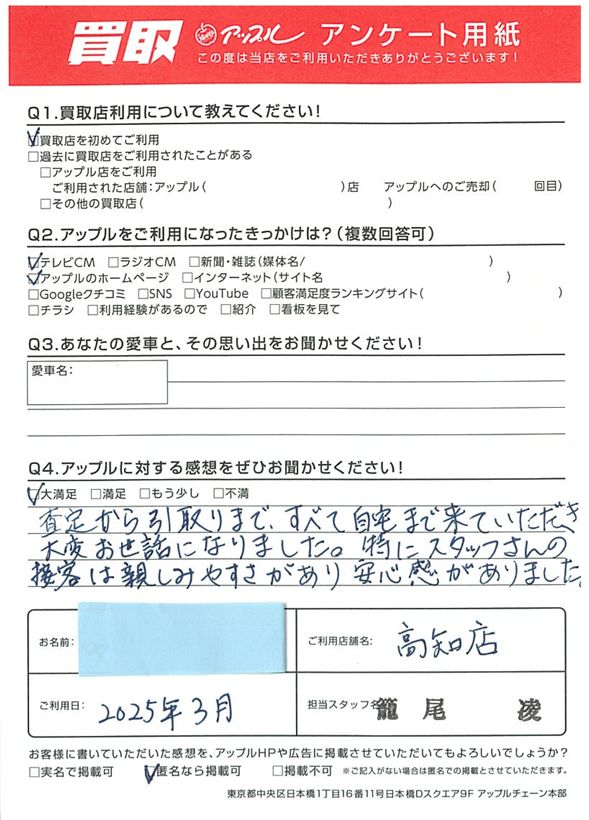 買取 アップル アンケート用紙
この度は当店をご利用いただきありがとうございます！
Q1.買取店利用について教えてください！
☑買取店を初めてご利用
□過去に買取店をご利用されたことがある
□アップル店をご利用
ご利用された店舗：アップル（　　　）店　アップルへのご売却（　　回目）
□その他の買取店（　　　）
Q2.アップルをご利用になったきっかけは？（複数回答可）
☑テレビCM □ラジオCM □新聞・雑誌（媒体名/　　　）
☑アップルのホームページ □インターネット（サイト名　　　）
□Googleクチコミ □SNS □YouTube □顧客満足度ランキングサイト（　　　）
□チラシ □利用経験があるので □紹介 □看板を見て
Q3.あなたの愛車と、その思い出をお聞かせください！
愛車名：
Q4.アップルに対する感想をぜひお聞かせください！
☑大満足 □満足 □もう少し □不満
査定から引取りまで、すべて自宅まで来ていただき
大変お世話になりました。特にスタッフさんの
接客は親しみやすさがあり安心感がありました。
お名前：
ご利用店舗名： 高知店
ご利用日： 2025年3月
担当スタッフ名 籠尾 凌
お客様に書いていただいた感想を、アップルHPや広告に掲載させていただいてもよろしいでしょうか？
□実名で掲載可 ☑匿名なら掲載可 □掲載不可 ※ご記入がない場合は匿名での掲載とさせていただきます。
東京都中央区日本橋1丁目16番11号日本橋Dスクエア9F アップルチェーン本部